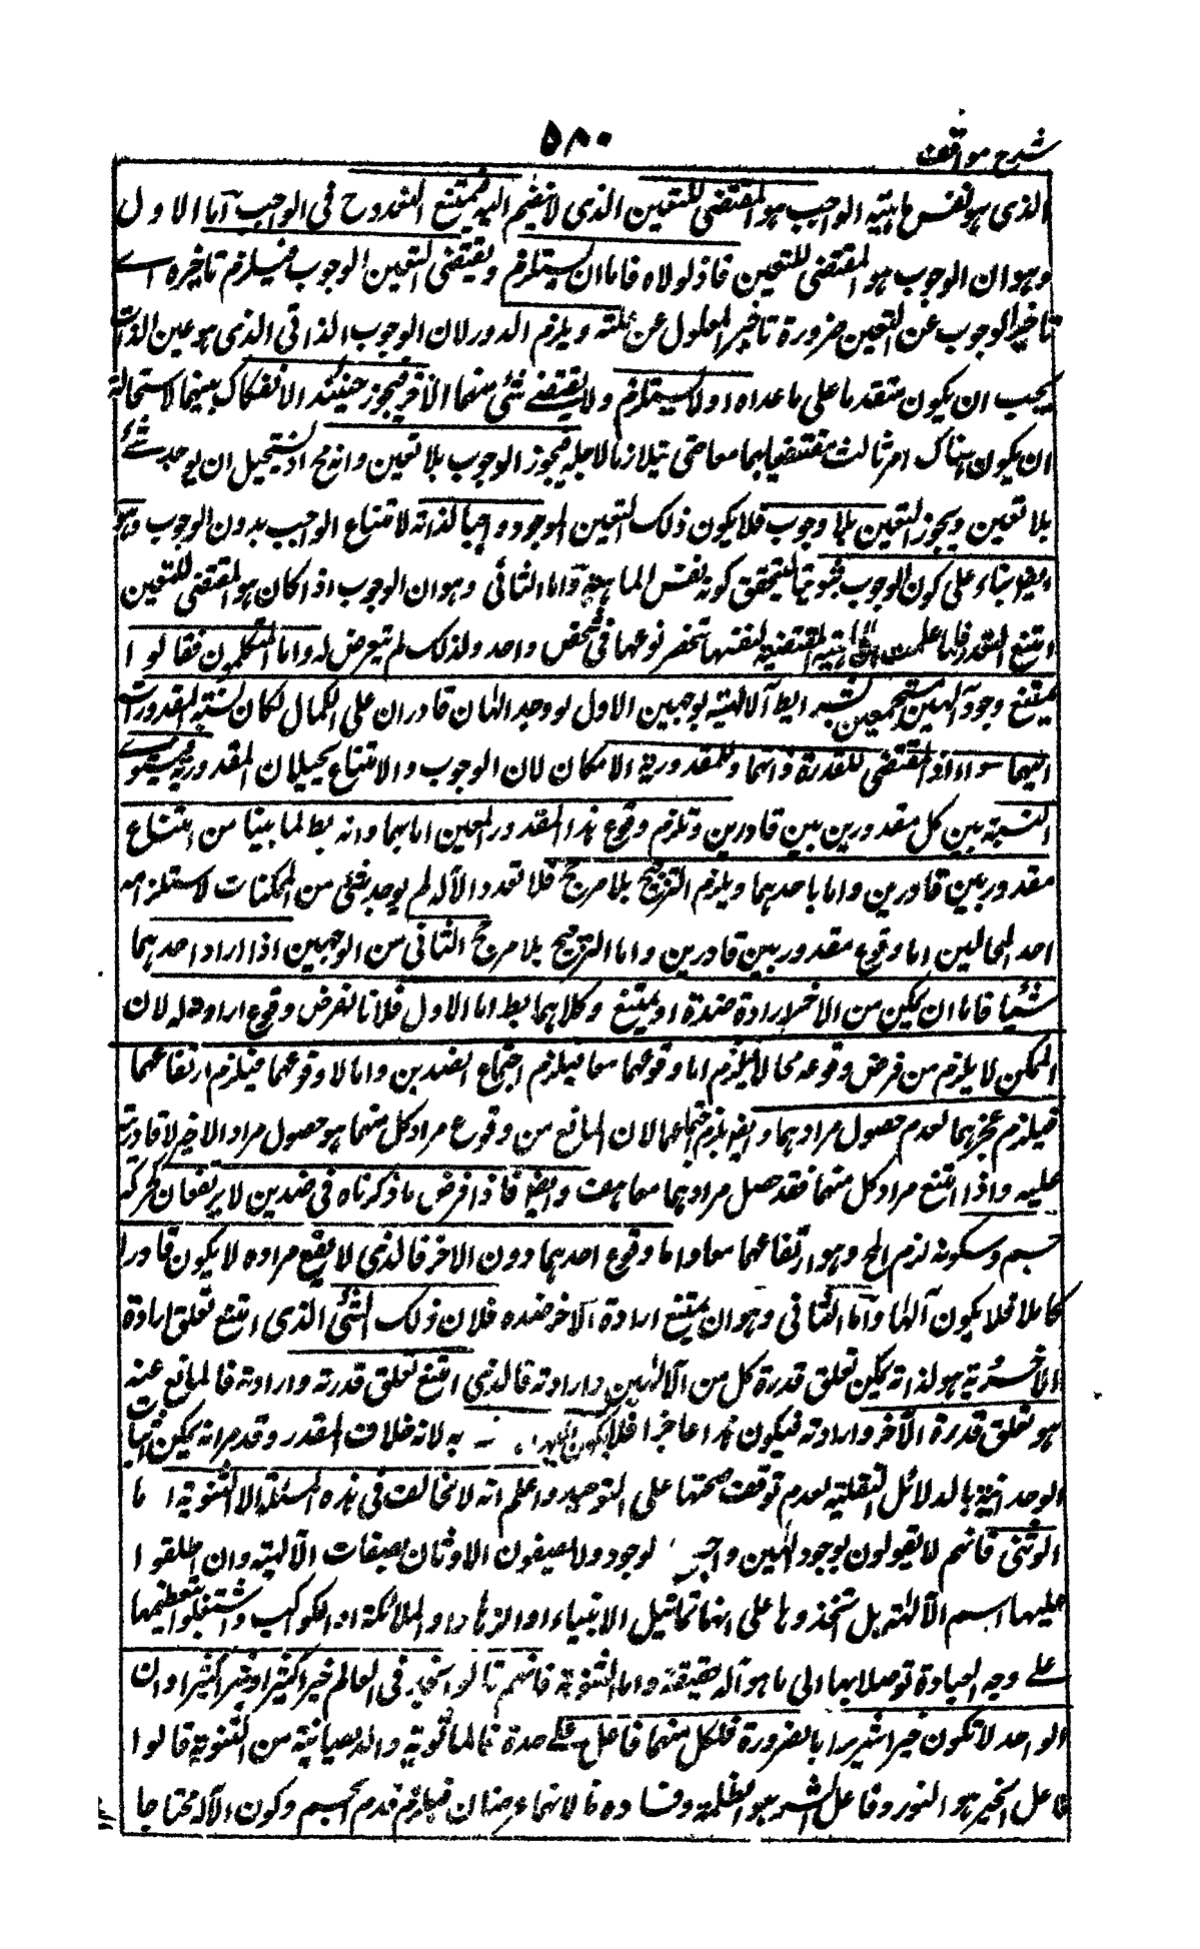 شرح مواقف
۵۸۰
الذی ہو نفس ماہیتہ الواجب ہو المقتضی للتعین الذی لا ینضم الیہ فیمتنع التعدد ح فی الواجب آما الاول
وہو ان الوجوب ہو المقتضی للتعین فاذ لولاہ فاما ان یستلزم ویقتضی التعین الوجوب فیلزم تاخیرہ اے
تاخیر الوجوب عن التعین ضرورة تاخیر المعلول عن علتہ ویلزم الدور لان الوجوب الذاتی الذی ہو عین الذات
یجب ان یکون متقدما علی ما عداہ اولا یستلزم ولا یقتضے شئ منہما الآخر فیجوز حینئذ الانفکاک بینہما لاستحالة
ان یکون ہناک امر ثالث مقتضیا لہما معا حتی یتلازما لاجلہ فیجوز الوجوب بلا تعین وانہ مح اذ یستحیل ان یوجد شئ
بلا تعین ویجوز التعین بلا وجوب فلا یکون ذلک التعین الموجود واجبا لذاتہ لامتناع الواجب بدون الوجوب وہو
ایضا بناء علی کون الوجوب ثبوتیا لیتحقق کونہ نفس الماہیة وآما الثانی وہو ان الوجوب اذا کان ہو المقتضی للتعین
امتنع التعدد فلما علمت ان الماہیة المقتضیة لتعینہا ینحصر نوعہا فی شخص واحد ولذلک لم یتعرض لہ واما المتکلمون فقالوا
یمتنع وجود آلہین مستجمعین لشرائط آلالہیة بوجہین الاول لو وجد الٰہان قادران علی الکمال لکان نسبة المقدورات
الیہما سواء اذ المقتضی للقدرة ذاتہما وللمقدوریة الامکان لان الوجوب والامتناع یحیلان المقدوریة فیستوے
النسبة بین کل مقدورین بین قادرین وتلزم وقوع ہذا المقدور المعین اما بہما وانہ بط لما بینا من امتناع
مقدور بین قادرین واما باحدہما ویلزم الترجیح بلا مرجح فلا تعدد الآلہ لم یوجد شئ من الممکنات لاستلزامہ
احد المحالین اما وقوع مقدور بین قادرین واما الترجیح بلا مرجح الثانی من الوجہین اذا اراد احدہما
شیئا فاما ان یمکن من الآخر ارادة ضدہ او یمتنع وکلاہما بط اما الاول فلانا نفرض وقوع ارادتہ لہ لان
الممکن لا یلزم من فرض وقوعہ محال فیلزم اما وقوعہما معا فیلزم اجتماع الضدین واما لا وقوعہما فیلزم ارتفاعہما
فیلزم عجزہما لعدم حصول مرادہما وایضا یلزم اجتماعہما لان المانع من وقوع مراد کل منہما ہو حصول مراد الآخر لا قادریتہ
علیہ واذا امتنع مراد کل منہما فقد حصل مرادہما معا ہف وایضا فاذا فرض ما ذکرناہ فی ضدین لا یرتفعان کحرکة
جسم وسکونہ لزم المح وہو ارتفاعہما معا واما وقوع احدہما دون الآخر فالذی لا یقع مرادہ لا یکون قادرا
کاملا فلا یکون آلہا وآما الثانی وہو ان یمتنع ارادة الآخر ضدہ فلان ذلک الشئ الذی امتنع تعلق ارادة
الآخر بہ ہو لذاتہ یمکن تعلق قدرة کل من الآلہین وارادتہ فالذی امتنع تعلق قدرتہ وارادتہ فالمانع عنہ
ہو تعلق قدرة الآخر وارادتہ فیکون ہذا عاجزا فلا یکون الہا بہ لانہ خلاف المقدر وقد مر انہ یمکن اثبات
الوحدانیة بالدلائل النقلیة لعدم توقف صحتہا علی التوحید واعلم انہ لا مخالف فی ہذہ المسئلة الا الثنویة اما
الوثنی فانہم لا یقولون بوجود الٰہین واجبی لوجود ولا یصفون الاوثان بصفات الآلہیة وان اطلقوا
علیہا اسم الآلہة بل اتخذوہا علی انہا تماثیل الانبیاء او الزہاد او الملائکة او الکواکب واشتغلوا بتعظیمہا
علے وجہ العبادة توصلا بہا الی ما ہو آلہ حقیقة واما الثنویة فانہم قالوا نجد فی العالم خیرا کثیرا وشرا کثیرا وان
الواحد لا یکون خیرا شریرا بالضرورة فلکل منہما فاعل علے حدة فالمانویة والدیصانیة من الثنویة قالوا
فاعل الخیر ہو النور وفاعل الشر ہو الظلمة وفسادہ ظ لانہما عرضان فیلزم قدم الجسم وکون الآلہ محتاجا